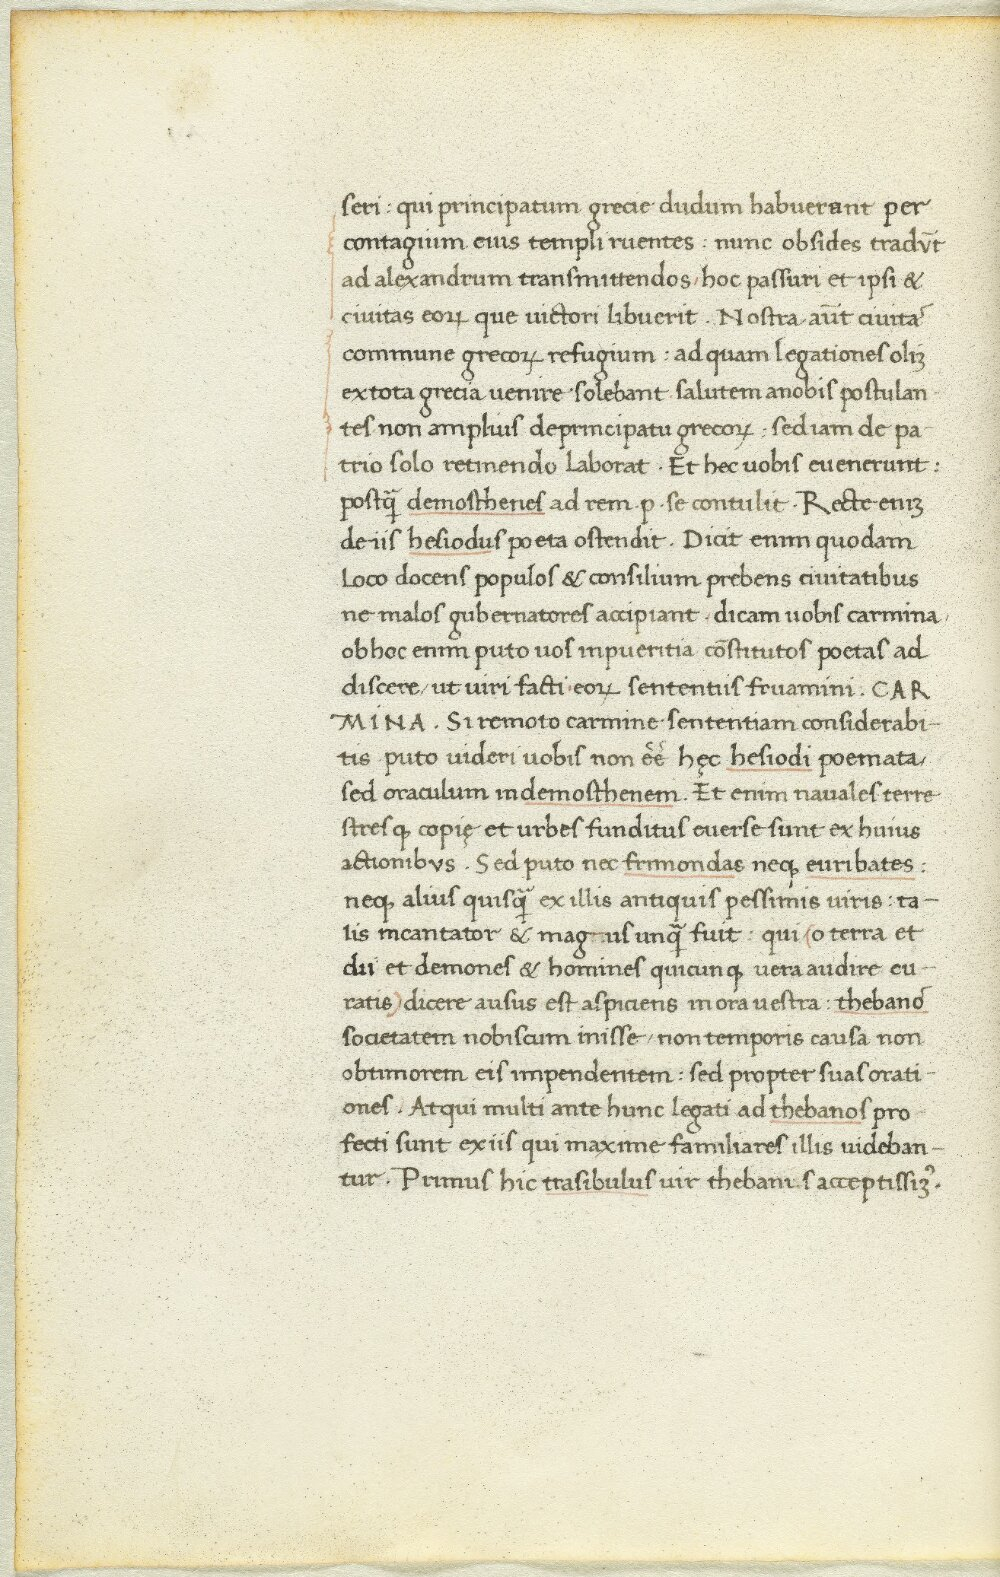 seri : qui principatum grecie dudum habuerant per
contagium eius templi ruentes : nunc obsides tradūt
ad alexandrum transmittendos, hoc passuri et ipsi &
ciuitas eoꝝ que uictori libuerit . Nostra aūt ciuitaˢ
commune grecoꝝ refugium : ad quam legationes oliꝫ
ex tota grecia uenire solebant salutem anobis postulan-
tes non amplius deprincipatu grecoꝝ : sediam de pa-
trio solo retinendo laborat . Et hec uobis euenerunt :
postq̃ demosthenes ad rem .p. se contulit . Recte eniꝫ
de iis hesiodus poeta ostendit . Dicit enim quodam
loco docens populos & consilium prebens ciuitatibus
ne malos gubernatores accipiant . dicam uobis carmina,
obhoc enim puto uos inpueritia cōstitutos poetas ad
discere, ut uiri facti eoꝝ sententiis fruamini . CAR
MINA . Si remoto carmine sententiam considerabi-
tis puto uideri uobis non eē hęc hesiodi poemata,
sed oraculum indemosthenem . Et enim nauales terre
stresqꝫ copię et urbes funditus euerse sunt ex huius
actionibus . Sed puto nec frinondas neqꝫ euribates :
neqꝫ alius quisq̃ ex illis antiquis pessimis uiris : ta-
lis incantator & magnus unq̃ fuit : qui (o terra et
dii et demones & homines quicunqꝫ uera audire cu-
ratis) dicere ausus est aspiciens in ora uestra : thebanoˢ
societatem nobiscum inisse, non temporis causa non
obtimorem eis impendentem : sed propter suas orati-
ones . Atqui multi ante hunc legati ad thebanos pro
fecti sunt ex iis qui maxime familiares illis uideban-
tur . Primus hic trasibulus uir thebanis acceptissiꝫꝰ .